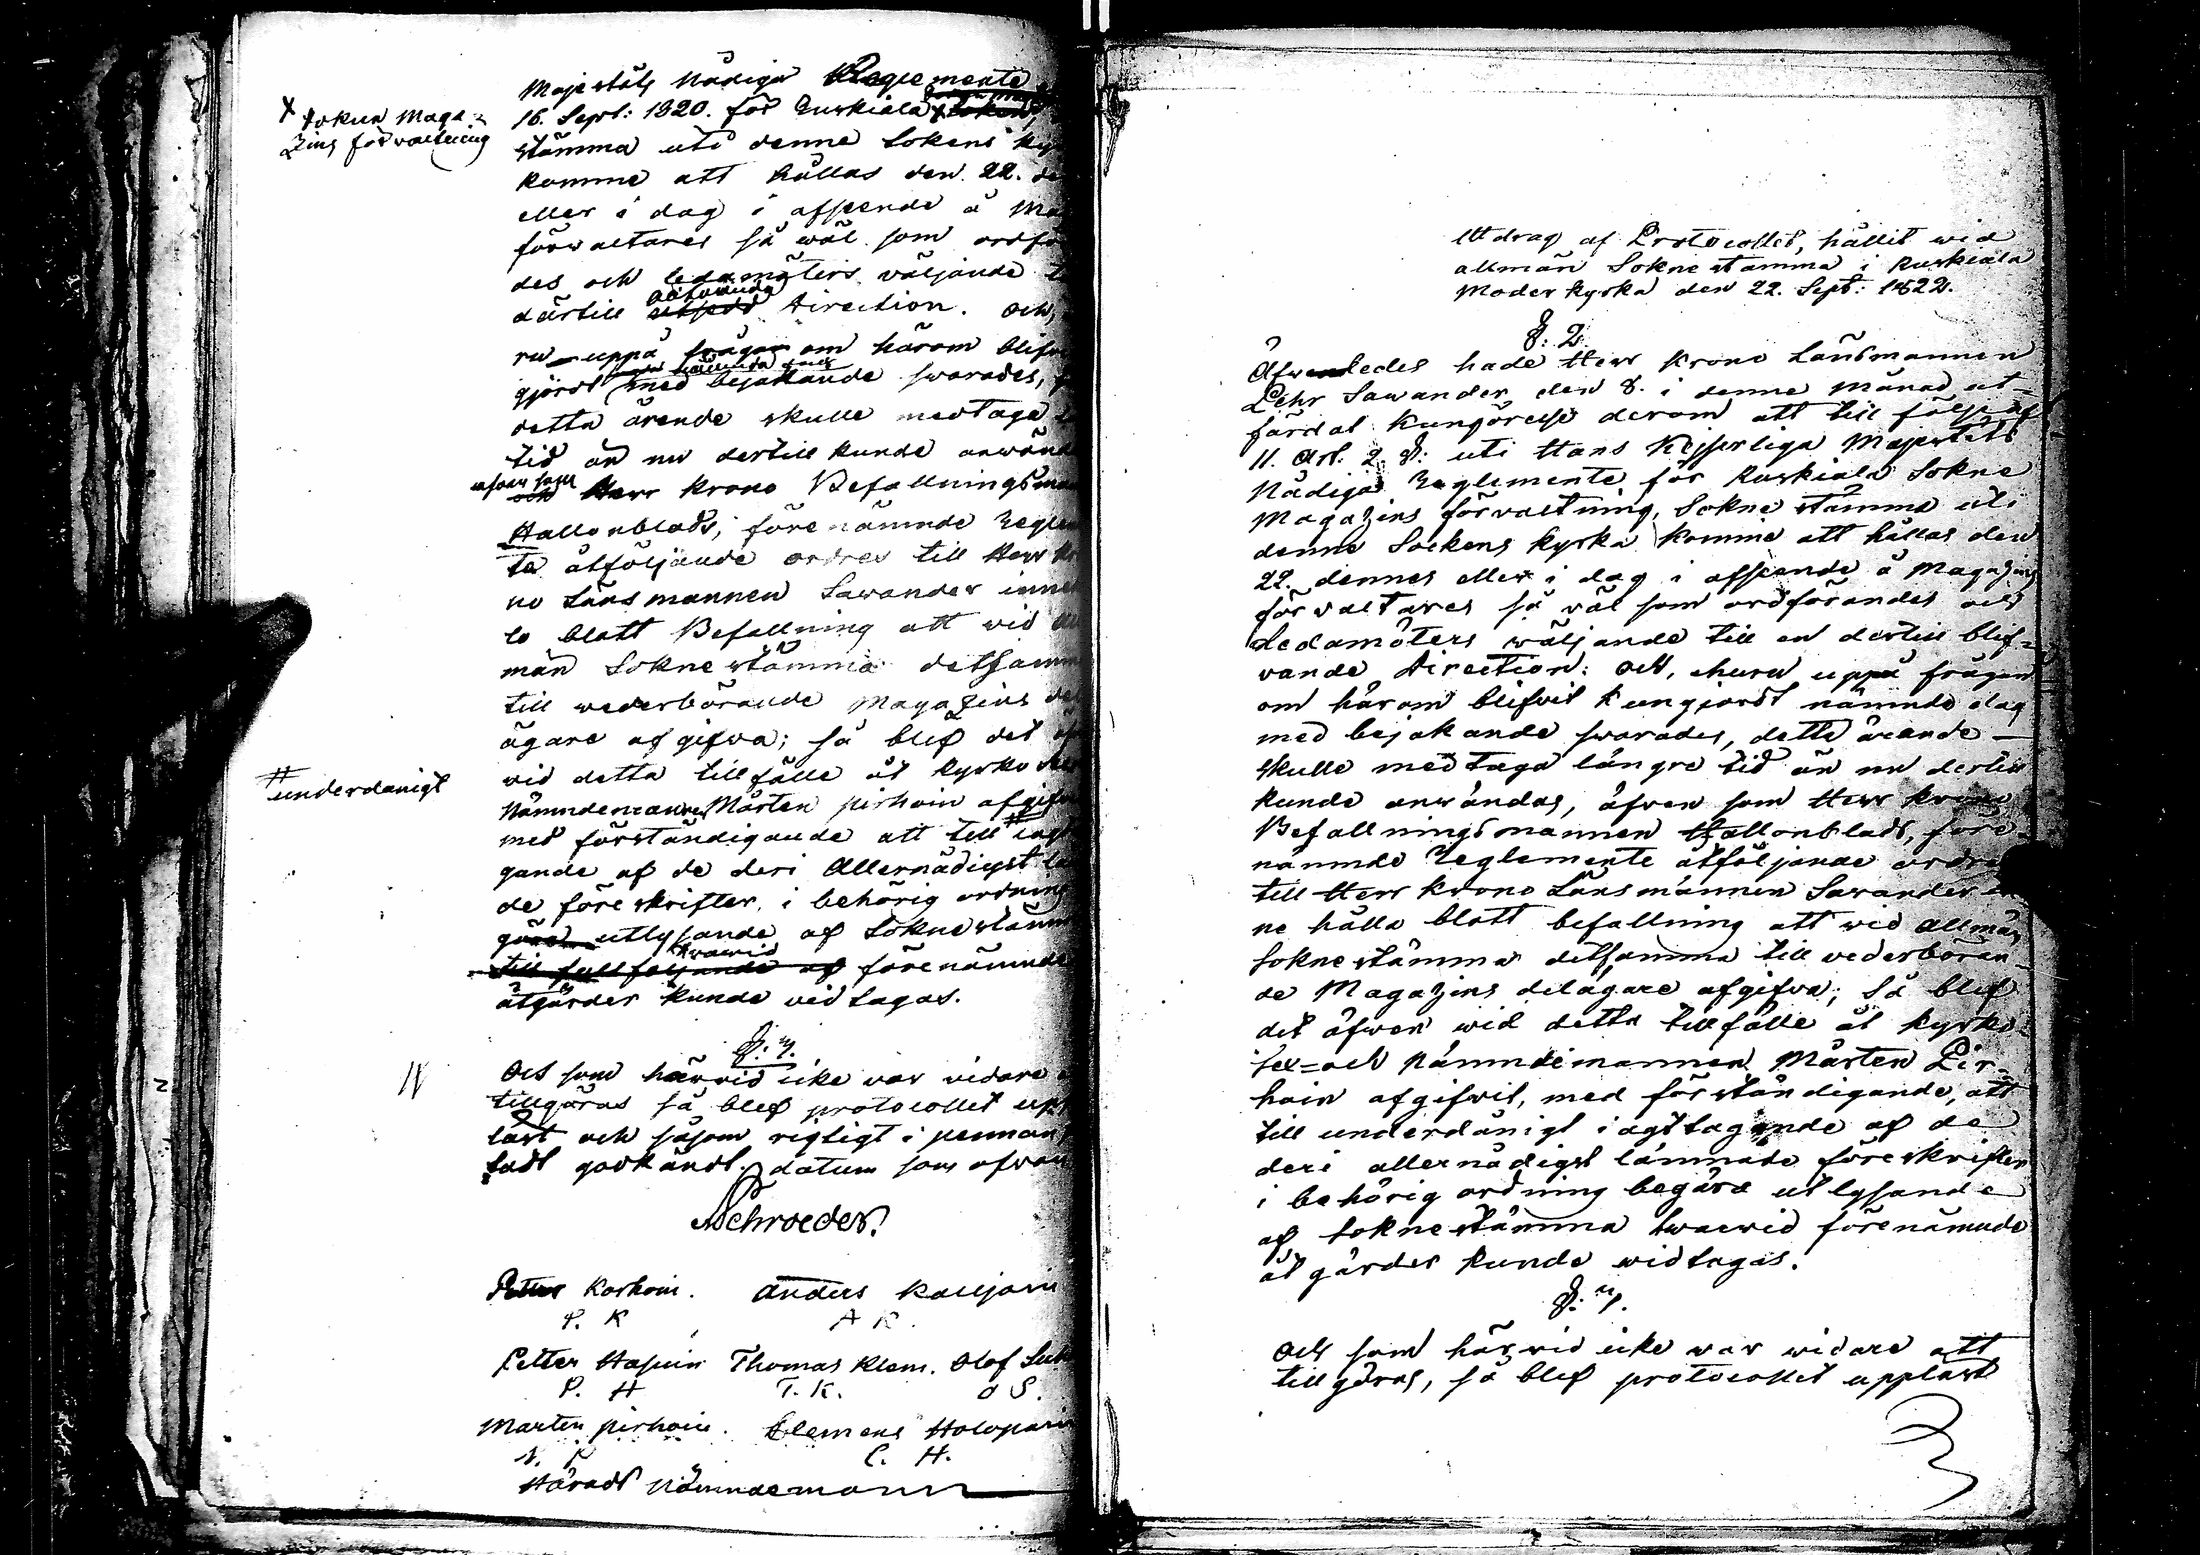 Majestäts Nådiga Reglemente
16. Sept: 1820. för Ruskiala
X Sokne Maga-
zins förvaltning
stämma uti denne Sokens
komme att hållas den 22.
eller i dag i afseende å
förwaltares så wäl som
des och ledamöters väljande
därtill blifvande Direction. och,
ru uppå frågan om härom
gjordt nämnda dag med bejakande swarades,
detta ärende skulle medtaga
tid än nu dertill kunde
äfven som Herr Krono
Hallonblads, förenämnde
te åtföljande ordres till Herr
no Länsmannen Sawander
lo blott Befallning att wid
män Sokne stämma detsamma
till wederbörande Magazins
ägare afgifwa; så blef det
wid detta tillfälle åt Kyrko
# underdånigt
Nämndemannen Mårten pirhoin
med förständigande att till #
gande af de deri Allernådigst
de föreskrifter, i behörig ordning
utlysande af Sokne
hwarwid förenämnde
åtgärder kunde vidtagas.
§: 7.
Och som härvid icke var vidare
tillgöras så blef protocollet
läst och såsom rigtigt i pennan
fadt godkändt. datum som
Schroeder.
Petter Korhoin. Anders
P. K A K.
Petter Hapuin Thomas Klem. Olof
P. H T. K. O S.
Mårten pirhoin. Clemens
C. H.
Härads Nämndemann
Utdrag af Protocollet, hållit wid
allmän Sokne stämma i Ruskiala
Moder Kyrka den 22. Sept: 1822.
§: 2.
Äfwenledes hade Herr Krono Länsmannen
Pehr Sawander den 8. i denne månad ut-
färdat Kungörelse derom att till följe af
11. Art. 2. §: uti Hans Kejserliga Majestäts
Nådiga Reglemente för Ruskiala Sokne
Magazins förvaltning, Sokne stämma uti
denne Sockens Kyrka komme att hållas den
22. dennes eller i dag i afseende å Magazins
förvaltares så väl som ordförandes och
Ledamöters wäljande till en dertill blif-
vande Direction: och, ehuru uppå frågan
om härom blifvit kungjordt nämnde dag
med bejakande swarades, detta ärende
skulle medtaga längre tid än nu dertill
kunde användas, äfven som Herr Krono
Befallningsmannen Hallonblads, före-
nämnde Reglemente åtföljande ordres
till Herr Krono Länsmannen Sawander in
ne hålla blott befallning att wid Allmän
sokne stämma detsamma till vederböran-
de Magazins delägare afgifva; så blef
det äfwen wid detta tillfälle åt Kyrko-
sex= och Nämndemannen Mårten Pir-
hoin afgifvit, med förständigande, att
till underdånigt iagttagande af de
deri allernådigst lämnade föreskrifter
i behörig ordning begära utlysande
af sokne stämma hwarwid förenämnde
åtgärder kunde widtagas.
§: 7.
Och som härvid icke war widare att
tillgöras, så blef protocollet uppläst